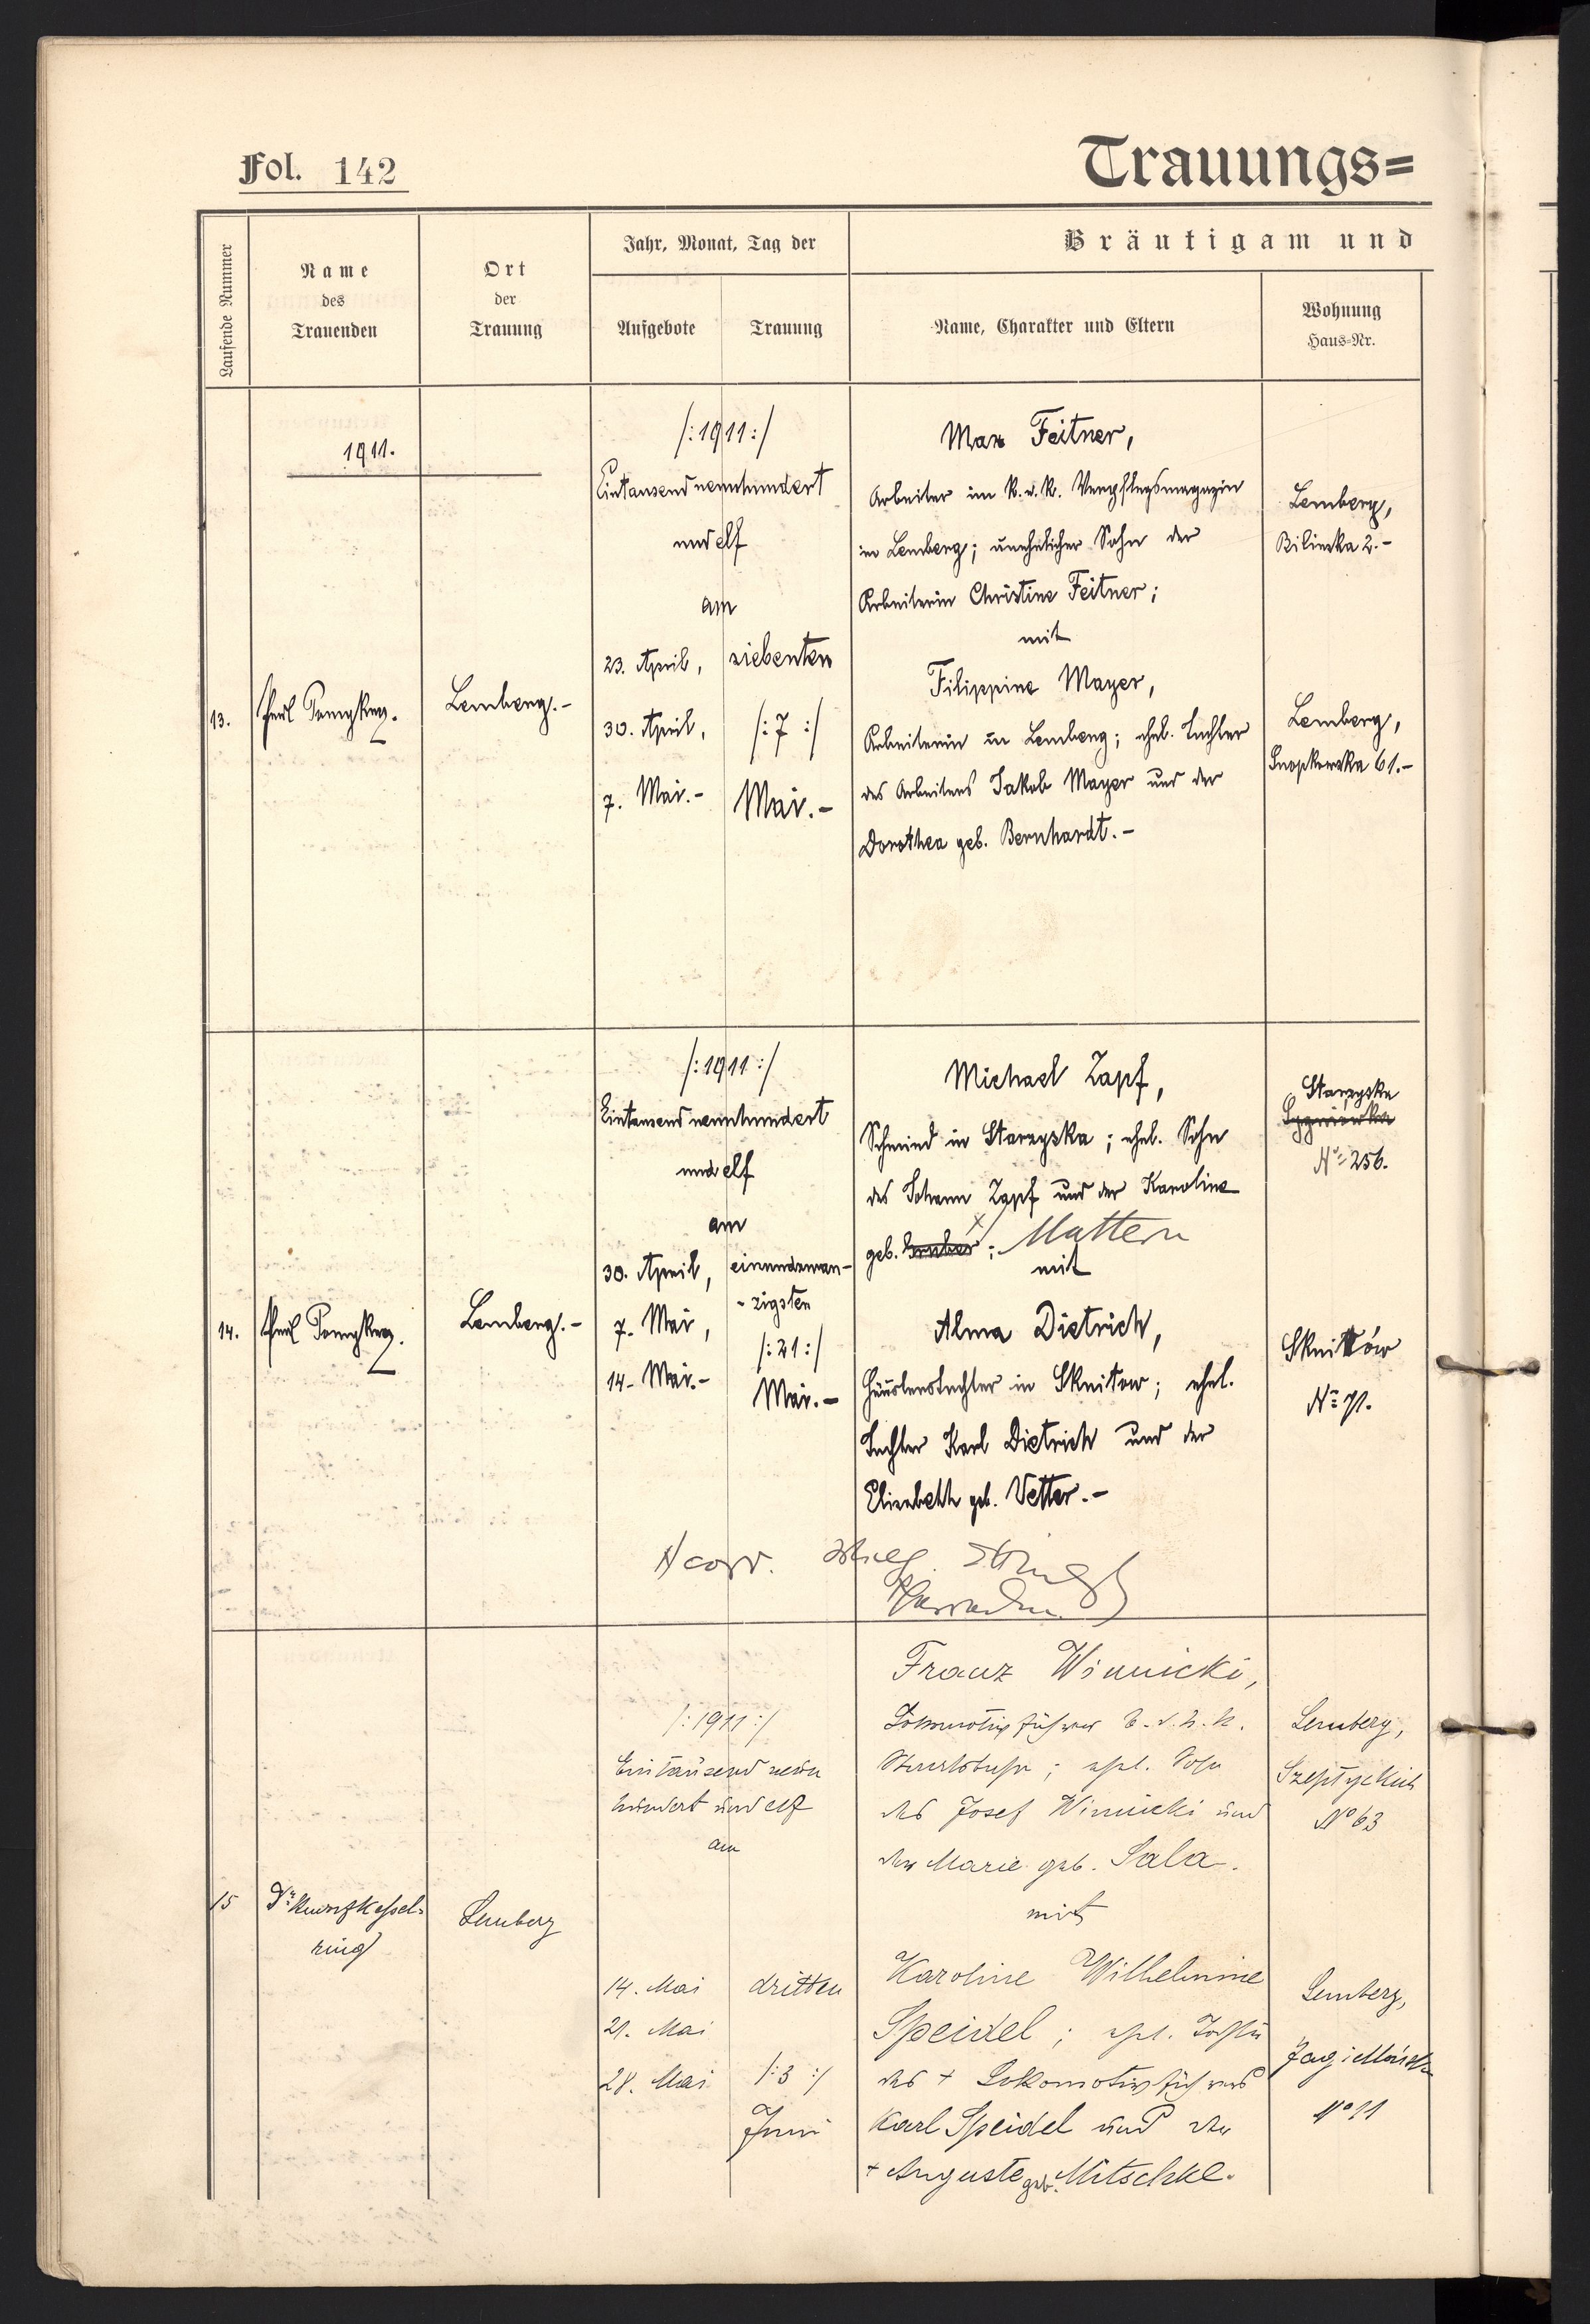 Fol. 142
Trauungs=
Laufende Nummer
Name
des
Trauenden
Ort
der
Trauung
Jahr, Monat, Tag der
Aufgebote
Trauung
Bräutigam und
Name, Charakter und Eltern
Wohnung
Haus-Nr.
1911.
13.
Lemberg.-
/:1911:/
Eintausendneunhundert
und elf
am
23. April,
30. April,
7. Mai.-
siebenten
/:7:/
Mai.-
Max Feitner,
Arbeiter im k.u.k. Verpflegsmagazin
in Lemberg; unehelicher Sohn der
Arbeiterin Christine Feitner;
mit
Filippine Mayer,
Arbeiterin in Lemberg; ehel. Tochter
des Arbeiters Jakob Mayer und der
Dorothea geb. Bernhardt.-
Lemberg,
Bilinska 2.-
Lemberg,
Snopkowska 61.-
14.
Lemberg.-
/:1911:/
Eintausendneunhundert
und elf
am
30. April,
7. Mai,
14. Mai.-
einundzwan-
-zigsten
/:21:/
Mai.-
Michael Zapf,
Schmied in Starzyska; ehel. Sohn
des Johann Zapf und der Karoline
geb. Gruber; Mattern
mit
Alma Dietrich,
Häuslerstochter in Sknitow; ehel.
Tochter Karl Dietrich und der
Elisabeth geb. Vetter.-
corr.
Starzyska
No 256.
Sknitów
No 71.
15
Lemberg
/:1911:/
Eintausend neun
hundert und elf
am
14. Mai
21. Mai
28. Mai
dritten
/:3:/
Juni
Franz Winnicki,
Lokomotivführer d. k. k.
Staatsbahn; ehel. Sohn
des Josef Winnicki und
der Marie geb. Sala.
mit
Karoline Wilhelmine
Speidel; ehel. Tochter
des + Lokomotivführers
Karl Speidel und der
+ Auguste geb. Mitschke.
Lemberg,
No 63
Lemberg,
No 11